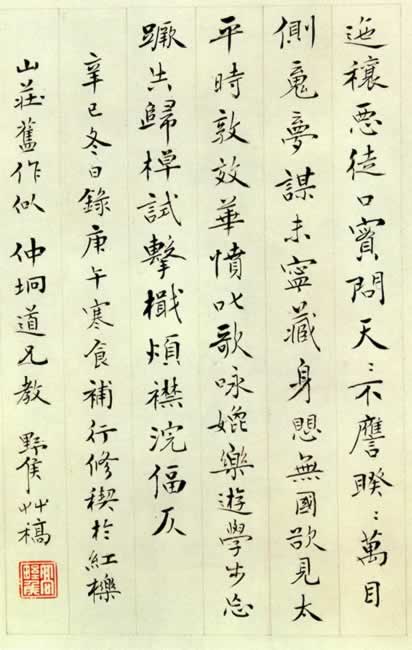 迤禳惡徒口實問天〻不譍睽〻萬目
側䰟夢謀未寧藏身愳無國欲見太
平時敦效華憤以歌咏媲樂遊學步忘
蹶告歸棹試擊檝煩襟浣偪仄
辛巳冬日錄庚午寒食補行修禊於紅櫟
山莊舊作似 仲坰道兄教 野侯艸槁